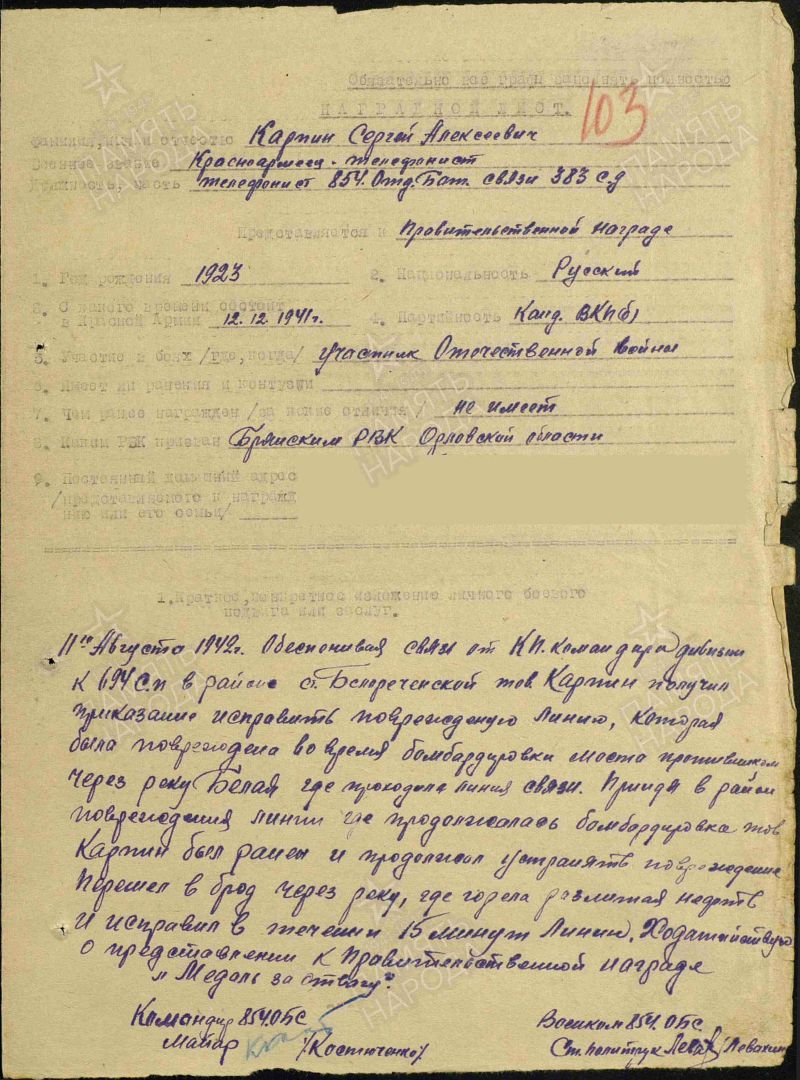 Обязательно все графы заполнять полностью
НАГРАДНОЙ ЛИСТ.
103
Фамилия, имя и отчество Карпин Сергей Алексеевич
Военное звание Красноармеец - телефонист
Должность, часть телефонист 854 Отд. Бат. связи 383 СД
Представляется к Правительственной награде
1. Год рождения 1923 2. Национальность Русский
3. С какого времени состоит
в Красной Армии 12.12.1941г. 4. Партийность Канд. ВКП(б)
5. Участие в боях /где, когда/ участник Отечественной войны
6. Имеет ли ранения и контузии
7. Чем ранее награжден /за какие отличия/ не имеет
8. Каким РВК призван Брянским РВК Орловской области
9. Постоянный домашний адрес
/представляемого к награжд
нию или его семьи/
1. Краткое, конкретное изложение личного боевого
подвига или заслуг.
11го Августа 1942г. Обеспечивая связь от К.П. командира дивизии
к 694 С.П в районе ст. Белореченской тов. Карпин получил
приказание исправить поврежденую линию, которая
была повреждена во время бомбардировки моста противником
через реку Белая где проходила линия связи. Придя в район
повреждения линии где продолжалась бомбардировка тов
Карпин был ранен и продолжал устранять повреждение
Перешел в брод через реку, где горела разлитая нефть
и исправил в течении 15 минут линию. Ходатайствую
о представлении к Правительственной награде
"Медаль за отвагу".
Командир 854 ОБС
Майор /Костюченко/
Военком 854 ОБС
Ст. политрук /Левахин